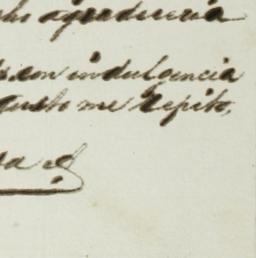 agradeceria
con indulgencia
gusto me repito,